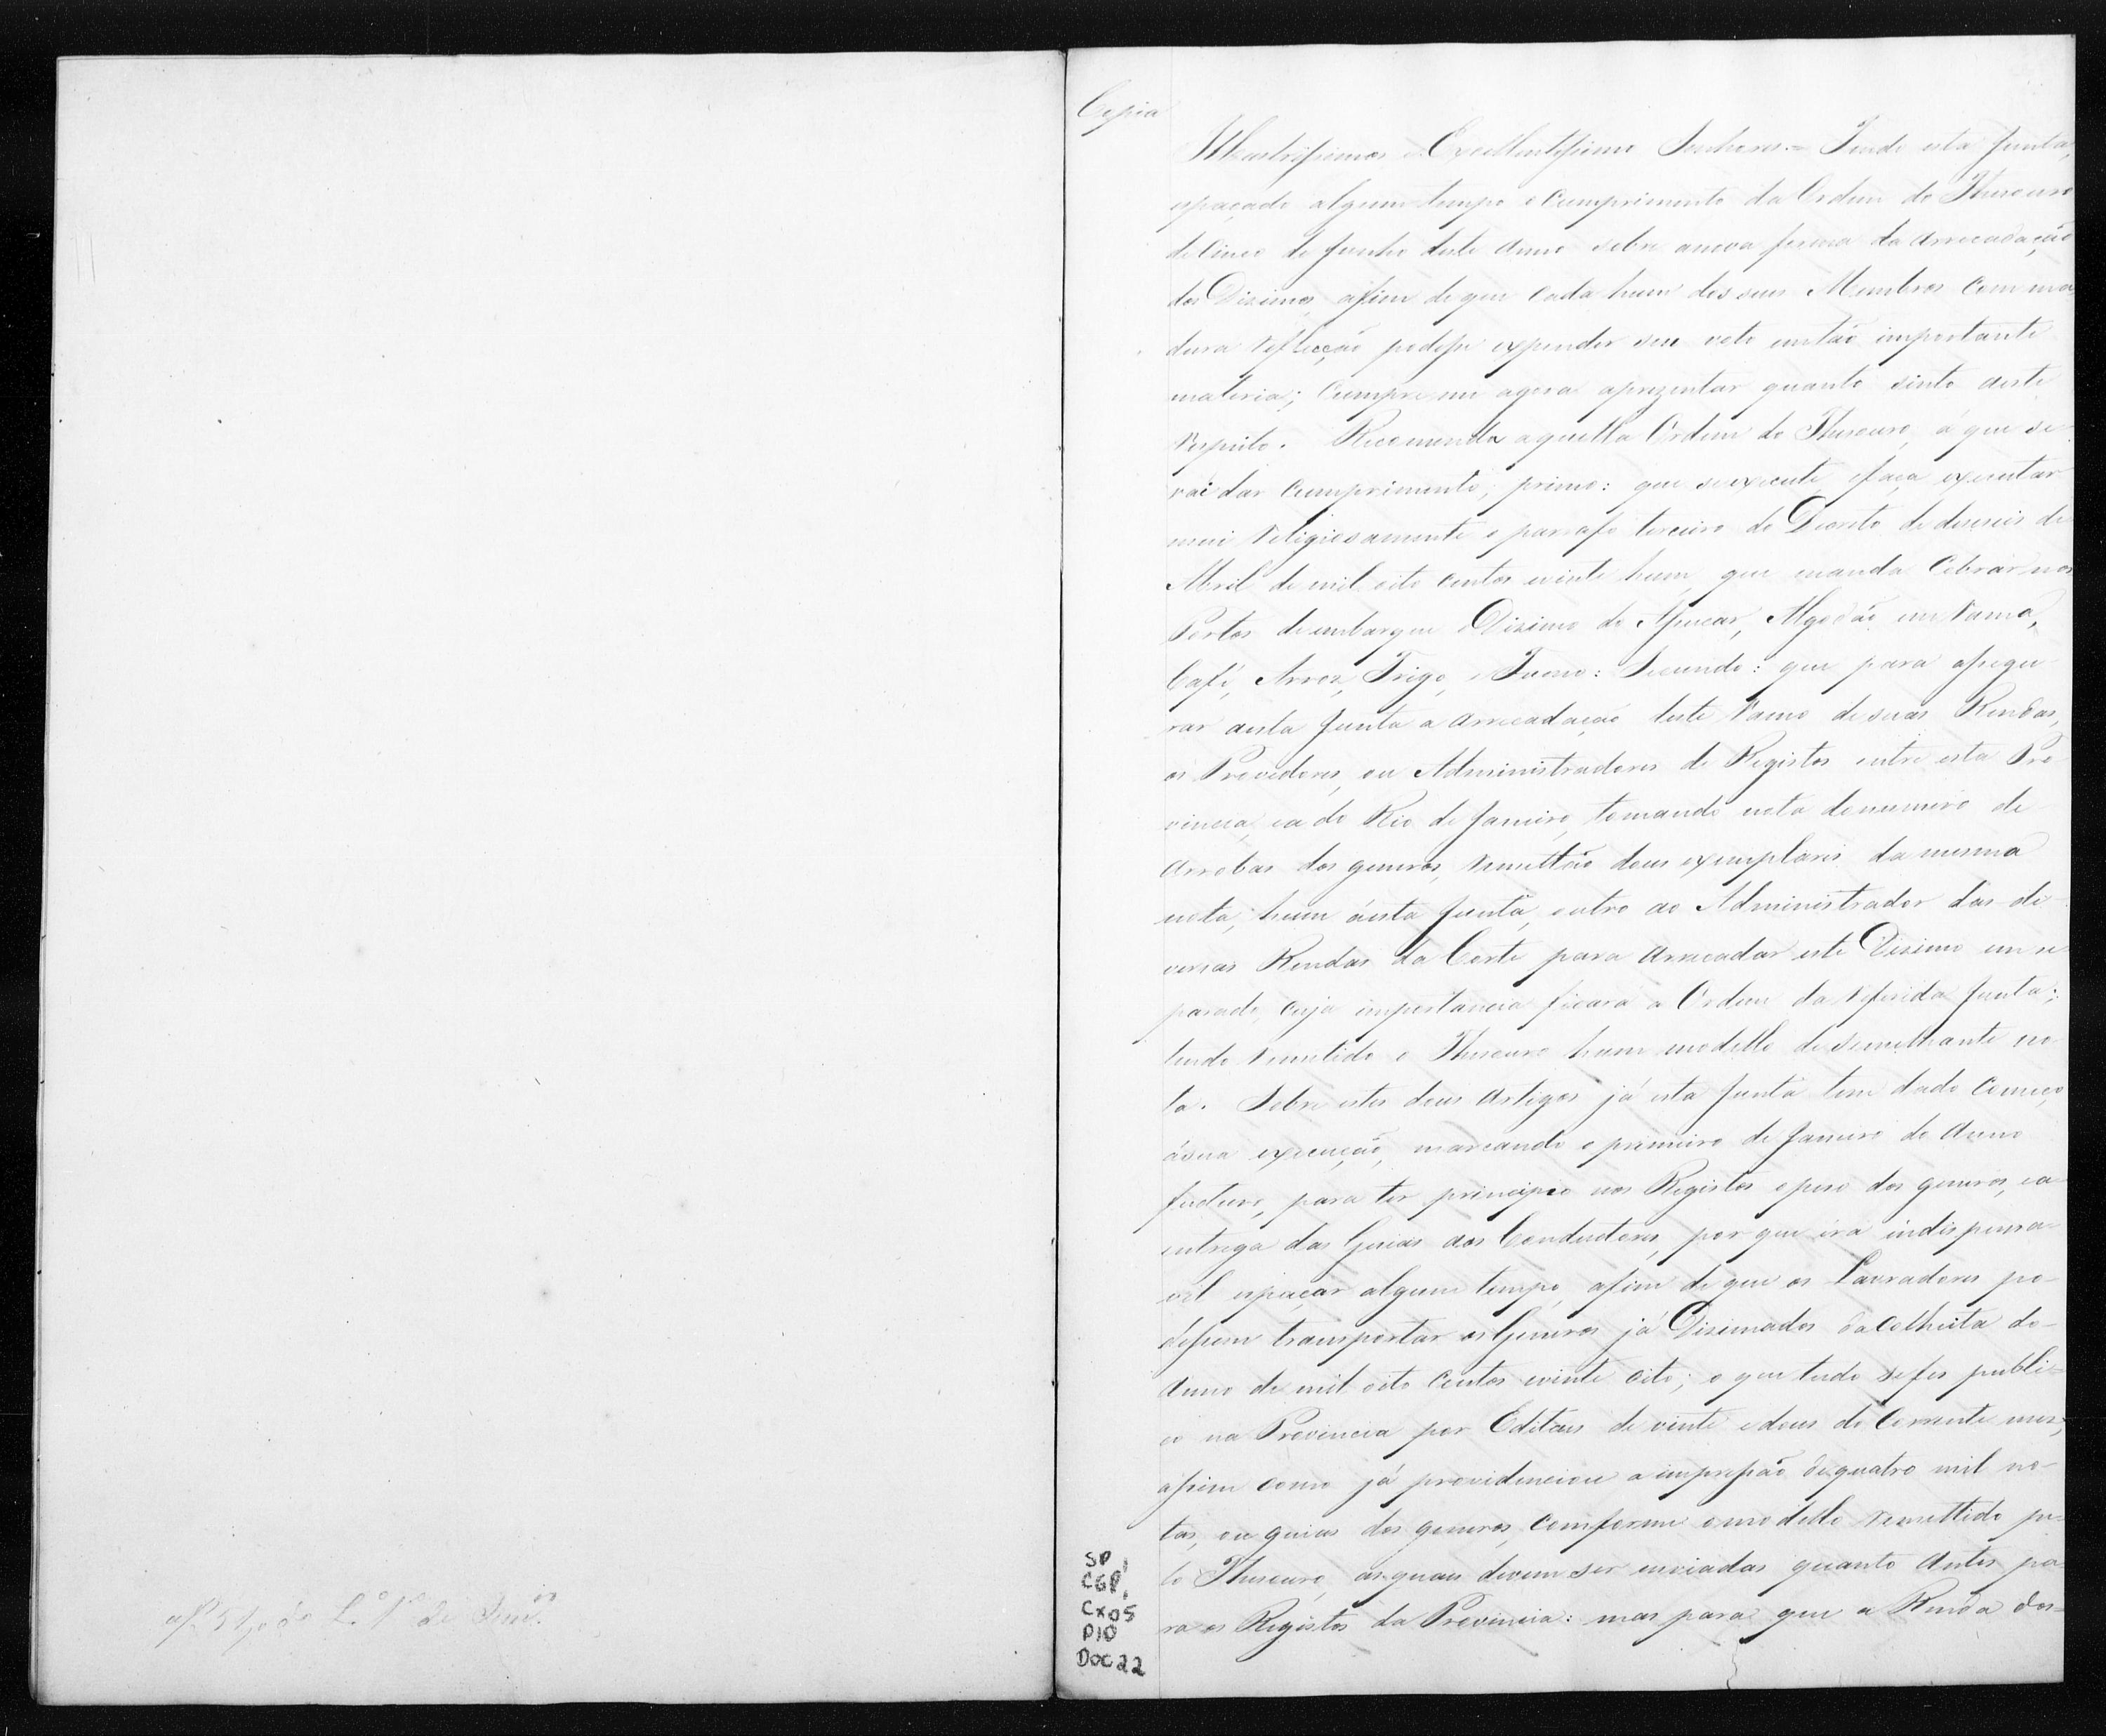 Copia
Illustrissimos e Excellentissimos Senhores. = Tendo esta Junta,
espaçado algum tempo o Cumprimento da Ordem do Thesouro
de Cinco de Junho deste Anno sobre a nova forma da Arrecadação
dos Dizimos, afim de que Cada hum dos seus Membros Com ma
dura reflecção podesse expender seu voto em tão importante
materia; Cumpre-me agora aprezentar quanto sinto a este
respeito. Recomenda aquella Ordem do Thesouro, á que se
vai dar Cumprimento; primo: que se execute e faça executar
mui religiosamente o parrafo terceiro do Decreto de dezeseis de
Abril de mil oito Centos e vinte hum, que manda Cobrar nos
Portos de embarque o Dizimo do Assucar, Algodão em rama,
Café, Arroz, Trigo, e Fumo: Secundo: que para assegu
rar a esta Junta a Arrecadação deste ramo de suas Rendas,
os Provedores, ou Administradores de Registos entre esta Pro
vincia, e a do Rio de Janeiro, tomando nota do numero de
Arrobas dos generos, remettão dous exemplares da mesma
nota; hum á esta Junta, outro ao Administrador das di
versas Rendas da Corte para Arrecadar este Dizimo em se
parado, cuja importancia ficará a Ordem da referida Junta;
tendo remetido o Thesouro hum modello de semelhante no
ta. Sobre estes dous Artigos já esta Junta tem dado Começo
á sua execução, marcando o primeiro de Janeiro do Anno
futuro, para ter principio nos Registos o peso dos generos, e a
entrega das Guias aos Conductores, por que éra indispensa-
vel espaçar algum tempo, afim de que os Lavradores po-
dessem transportar os Generos já Dizimados da Colheita do
Anno de mil oito Centos e vinte oito; o que tudo se fez publi-
co na Provincia por Editaes de vinte e dous do Corrente mez,
assim como já providenciou a impressão de quatro mil no-
tas, ou guias dos generos, Comforme o modello remettido pe-
lo Thesouro, as quaes devem ser enviadas quanto Antes pa
ra os Registos da Provincia: mas para que a Renda dos-
SP,
CGP,
Cx05
P10
Doc 22